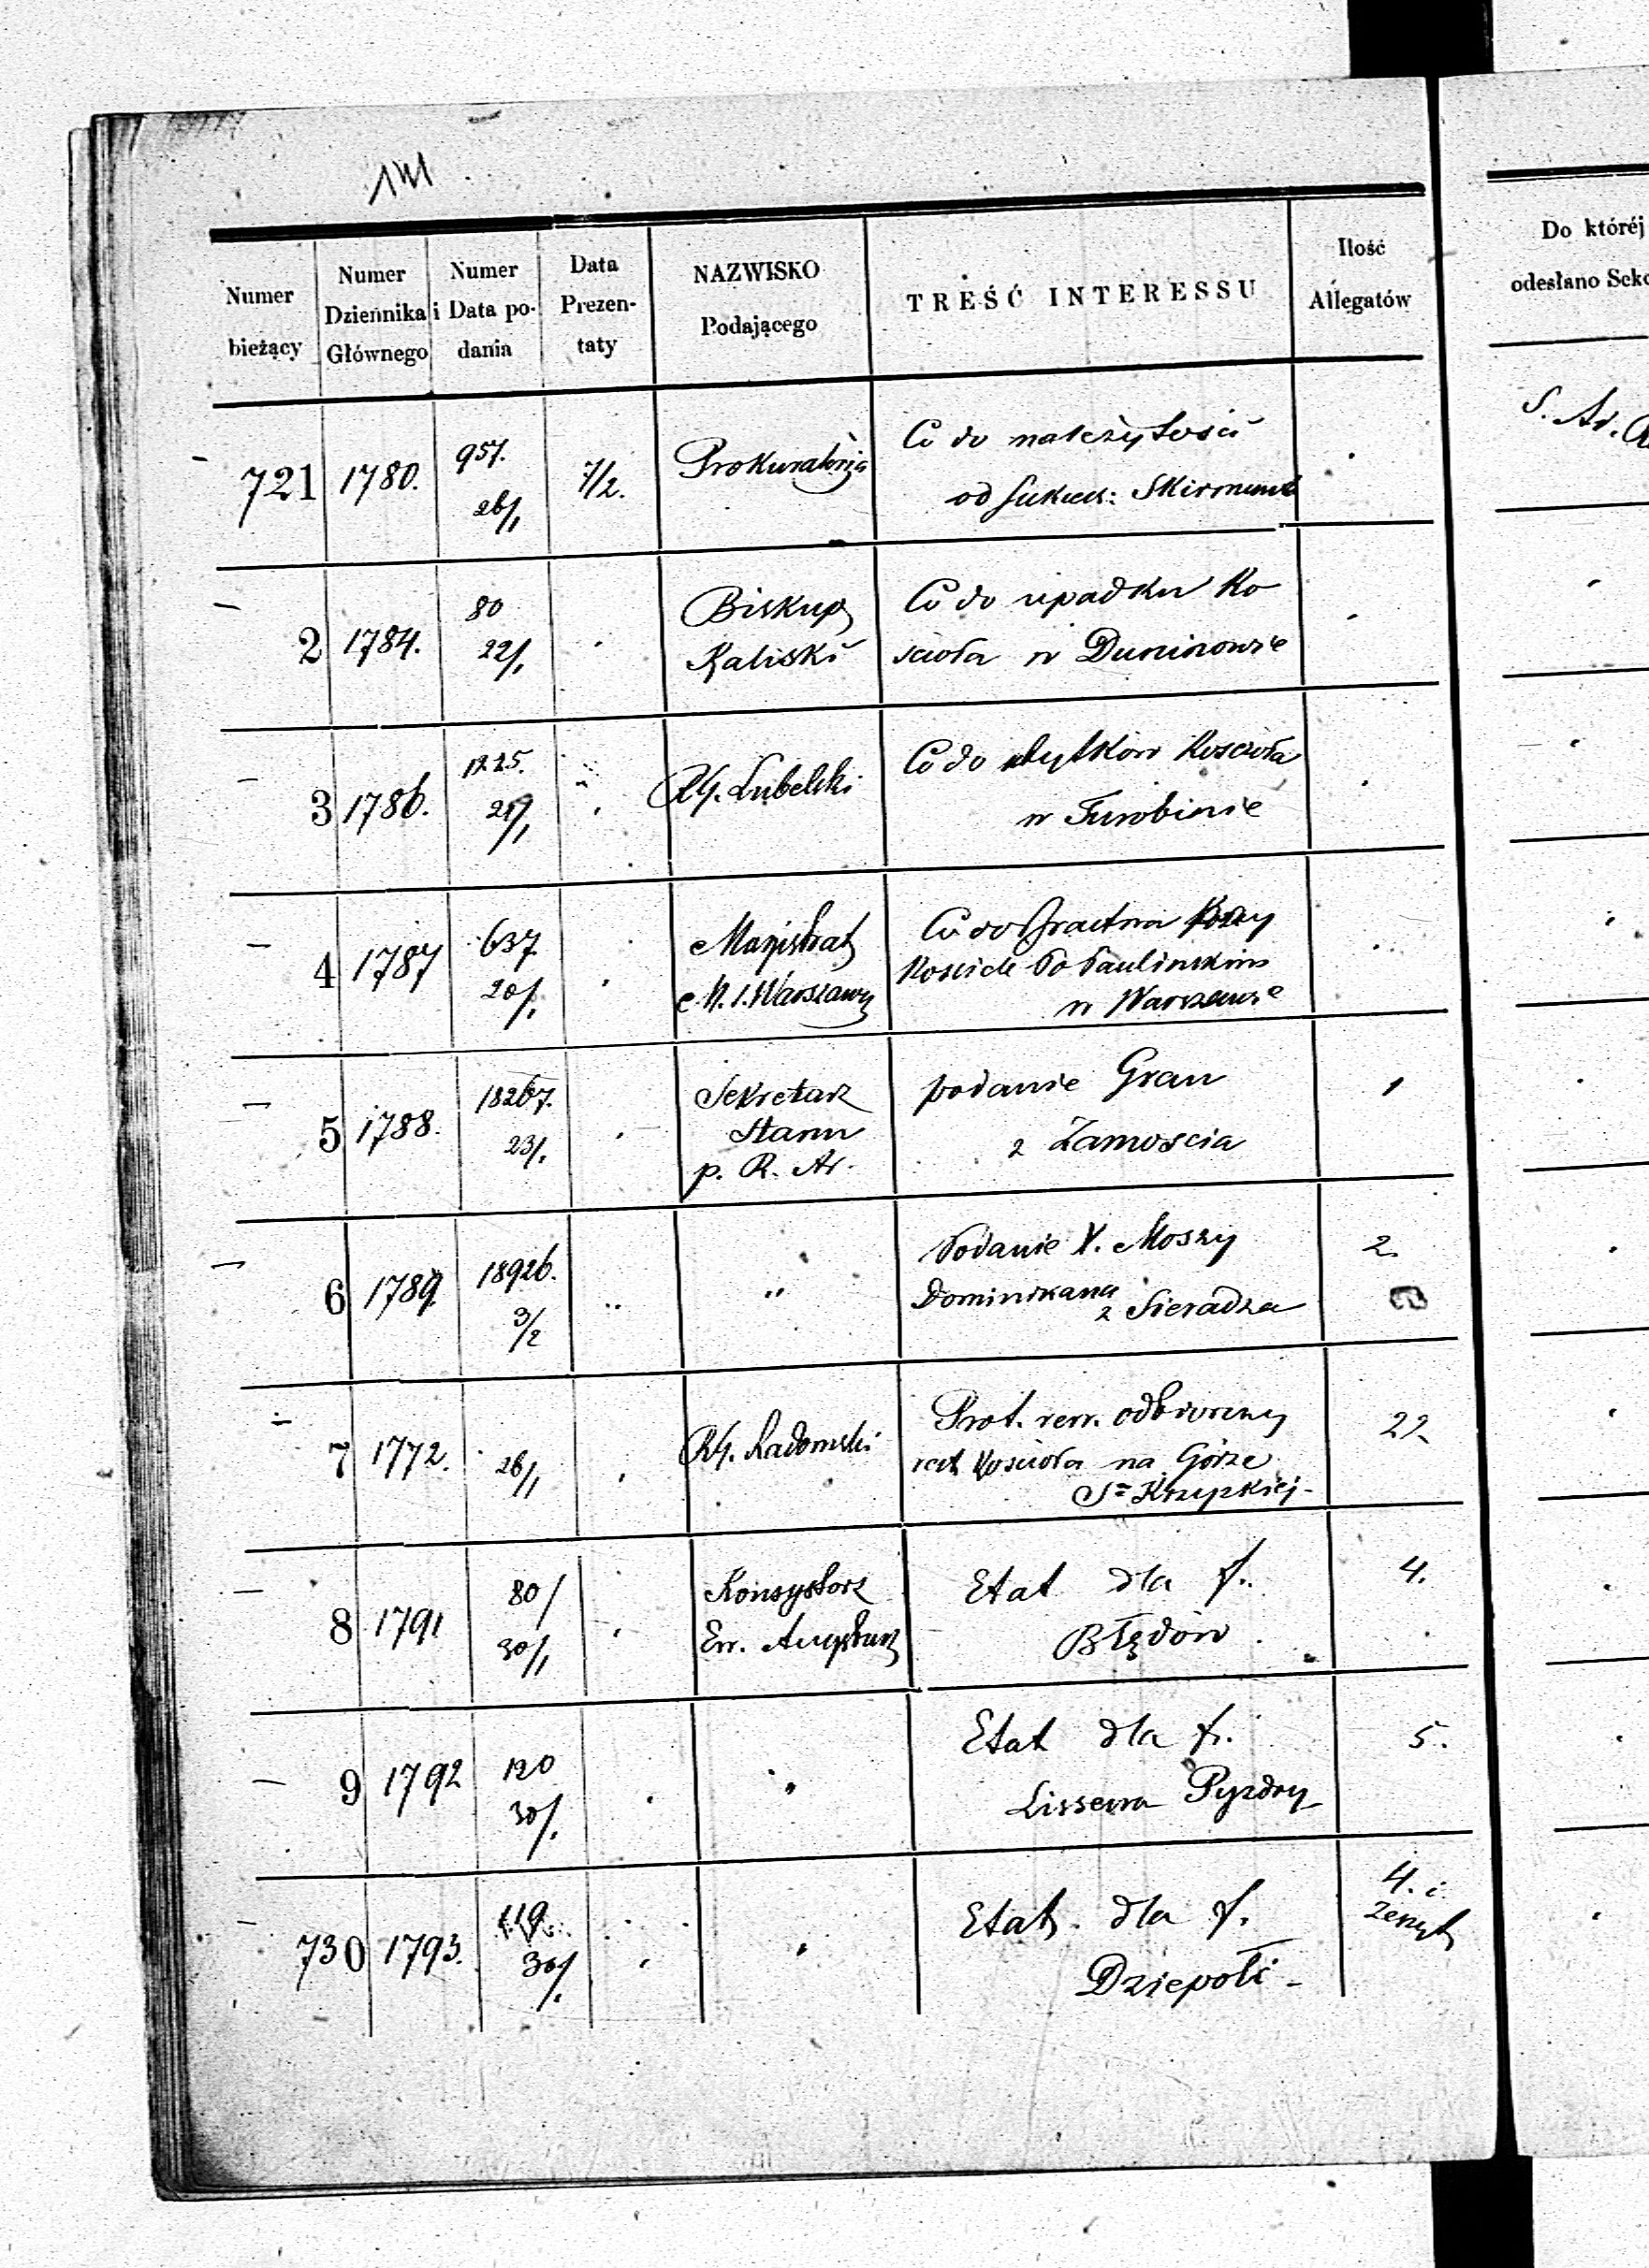 Numer bieżący
Numer Dziennika Głównego
Numer i Data podania
Data Prezentaty
NAZWISKO Podającego
TREŚĆ INTERESSU
Ilość Allegatów
Do któréj
odesłano
721 1780. 957. 26/1 7/2. Prokuratorja
Co do należytości
od sukces: Skirmunt
2 1784. 80 22/1 Biskup
Kaliski
Co do upadku Ko
scioła w Duninowie
3 1786. 1225. 21/1 RG. Lubelski
Co do Koscioła
w Turobinie
4 1787 637. 20/1 Magistrat
M. S. Warszawy
Co do Bractwa przy
Kosciele Po Paulinskim
w Warszawie
5 1788. 18267. 23/1 Sekretarz
Stanu
p. R. Ar.
podanie Gran 1
z Zamoscia
6 1789. 18926. 3/2 "
Podanie X. Moszy 2.
Dominikana
z Sieradza
7 1772. 26/1 RG. Radomski
Prot. rew. odbiorczy 22
Kościoła na Górze
Sto Krzyzkiej-
8 1791 80/ 30/1 Konsystorz
Ew. Augsburs
Etat dla f. 4.
Błędów
9 1792 120 30/1 "
Etat dla f. 5.
Lissewa Pyzdry
730 1793. 119. 30/1 "
Etat dla f. 4. i
Zeszyt
Dziepołi-